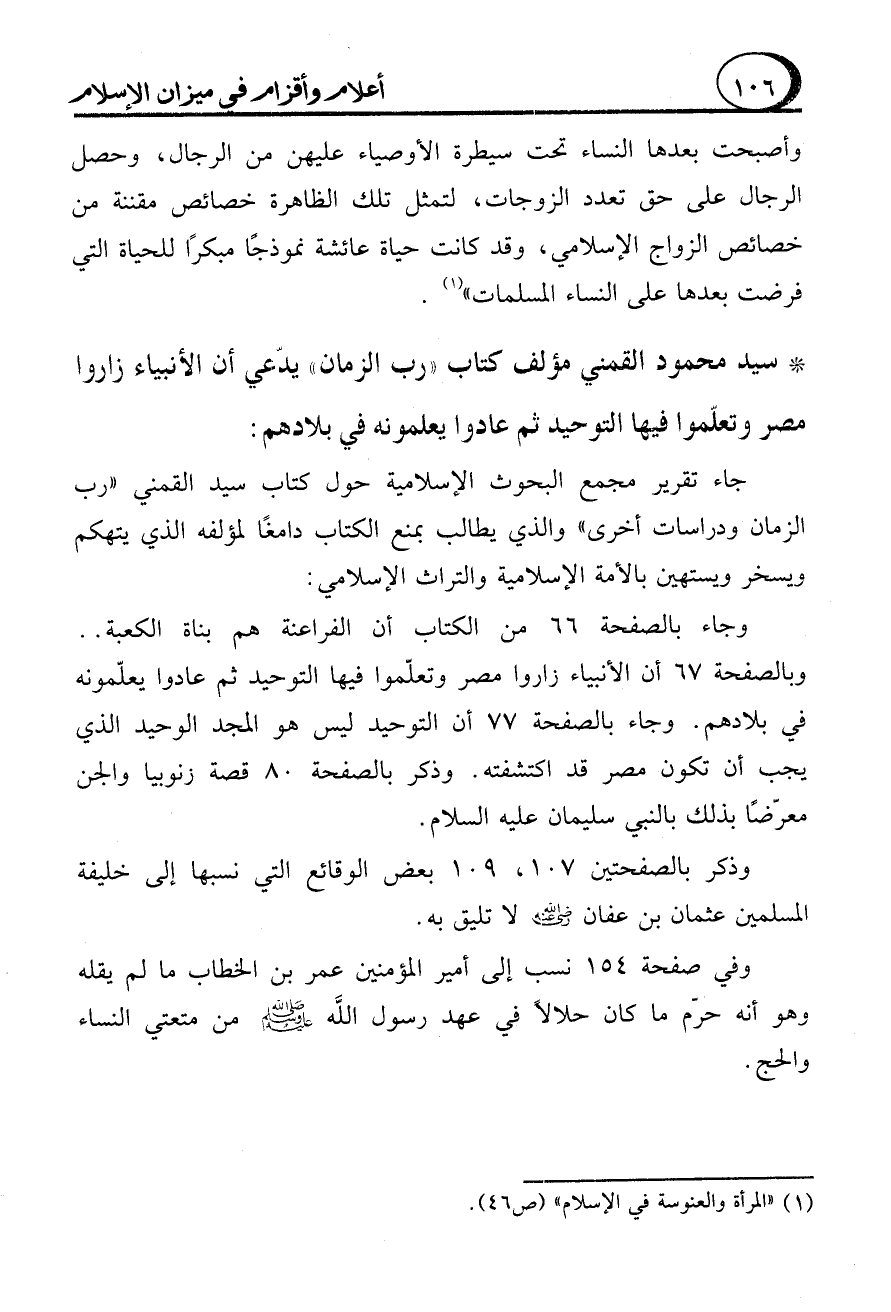 ١٠٦
أعلام وأقزام في ميزان الإسلام
وأصبحت بعدها النساء تحت سيطرة الأوصياء عليهن من الرجال، وحصل
الرجال على حق تعدد الزوجات، لتمثل تلك الظاهرة خصائص مقننة من
خصائص الزواج الإسلامي، وقد كانت حياة عائشة نموذجًا مبكرًا للحياة التي
فرضت بعدها على النساء المسلمات»(١) .
* سيد محمود القمني مؤلف كتاب «رب الزمان» يدّعي أن الأنبياء زاروا
مصر وتعلّموا فيها التوحيد ثم عادوا يعلمونه في بلادهم:
جاء تقرير مجمع البحوث الإسلامية حول كتاب سيد القمني «رب
الزمان ودراسات أخرى» والذي يطالب بمنع الكتاب دامغًا لمؤلفه الذي يتهكم
ويسخر ويستهين بالأمة الإسلامية والتراث الإسلامي:
وجاء بالصفحة ٦٦ من الكتاب أن الفراعنة هم بناة الكعبة..
وبالصفحة ٦٧ أن الأنبياء زاروا مصر وتعلّموا فيها التوحيد ثم عادوا يعلّمونه
في بلادهم. وجاء بالصفحة ٧٧ أن التوحيد ليس هو المجد الوحيد الذي
يجب أن تكون مصر قد اكتشفته. وذكر بالصفحة ٨٠ قصة زنوبيا والجن
معرّضًا بذلك بالنبي سليمان عليه السلام.
وذكر بالصفحتين ١٠٧، ١٠٩ بعض الوقائع التي نسبها إلى خليفة
المسلمين عثمان بن عفان رضي الله عنه لا تليق به.
وفي صفحة ١٥٤ نسب إلى أمير المؤمنين عمر بن الخطاب ما لم يقله
وهو أنه حرّم ما كان حلالاً في عهد رسول اللَّه ﷺ من متعتي النساء
والحج.
(١) «المرأة والعنوسة في الإسلام» (ص٤٦).